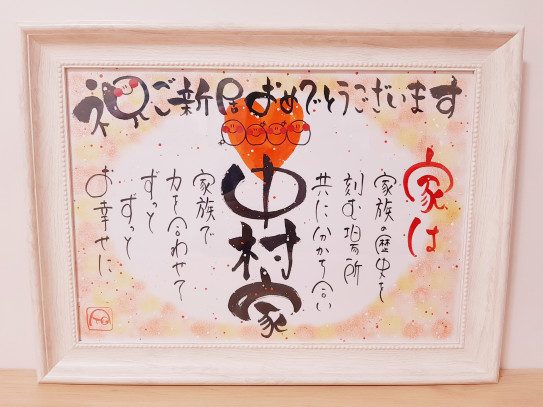 祝ご新居おめでとうございます
家は
家族の歴史を
刻む場所
共に分かち合い
中村家
家族で
力を合わせて
ずっと
ずっと
お幸せに